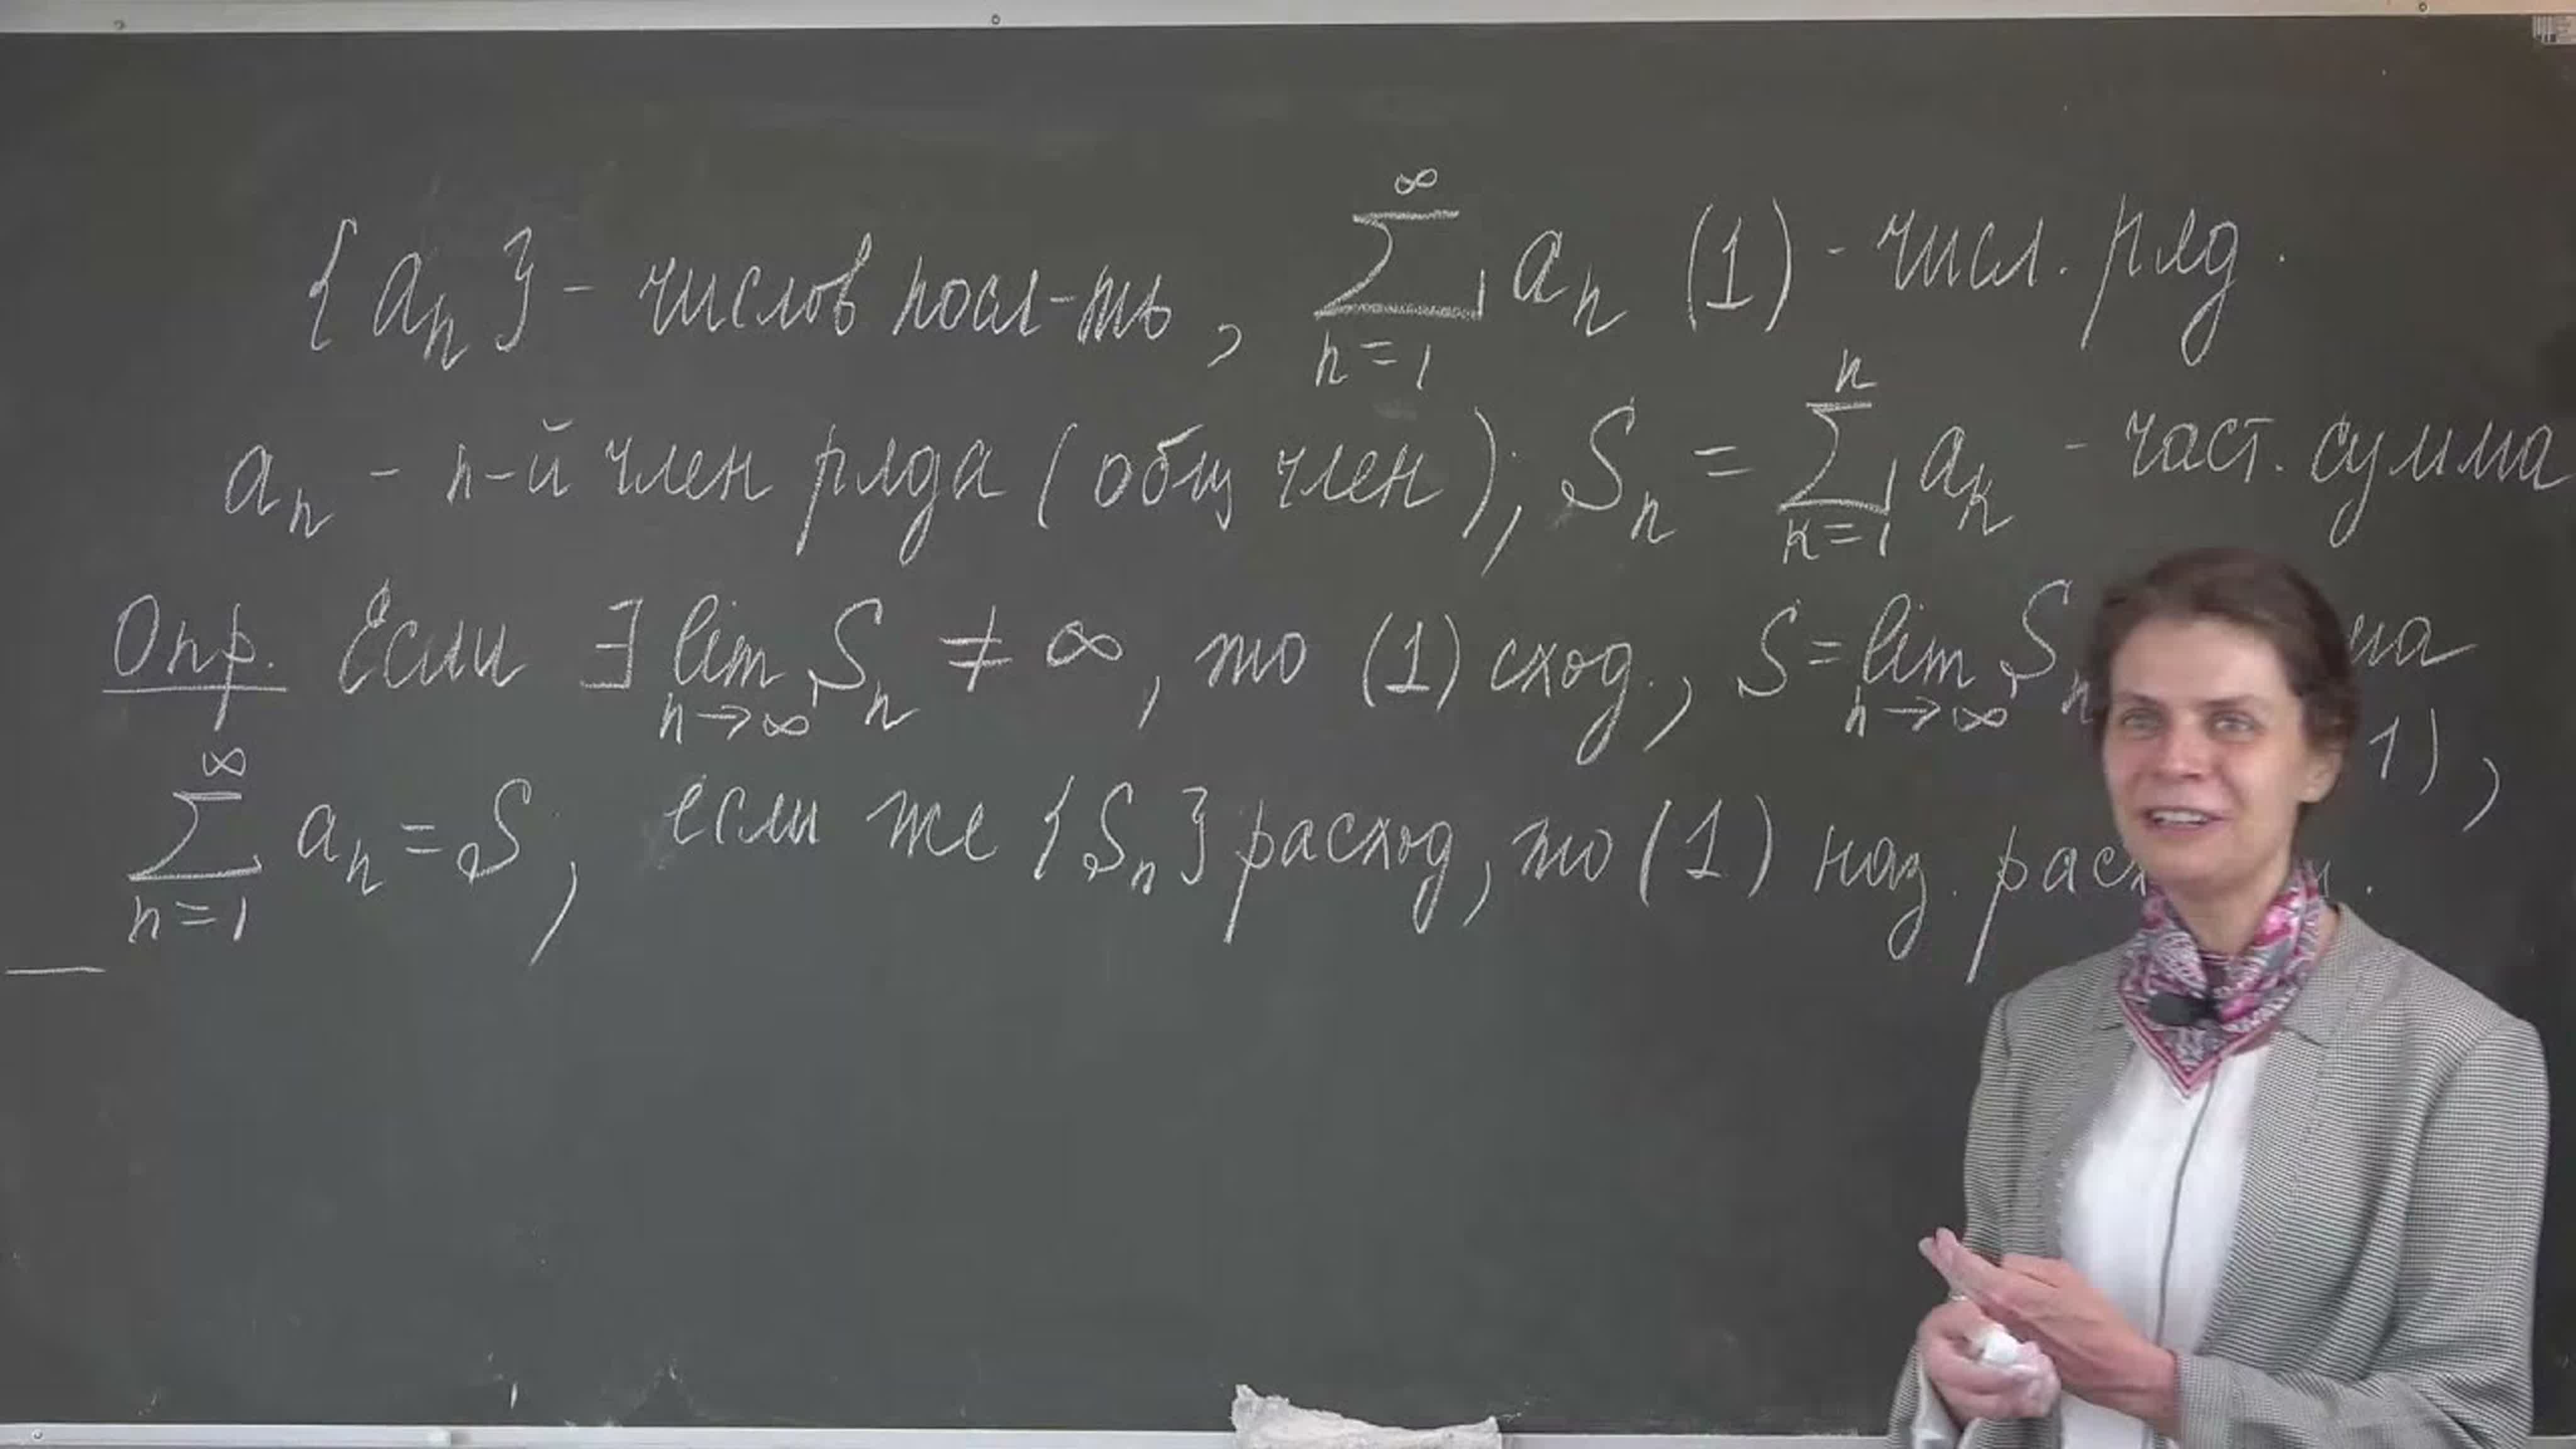 {aₙ} - числов посл-ть, ∞ ∑ n=1 aₙ (1) - числ. ряд.
aₙ - n-й член ряда (общ член); Sₙ = n ∑ k=1 aₖ - част. сумма
Опр. Если ∃ lim n→∞ Sₙ ≠ ∞, то (1) сход., S = lim n→∞ Sₙ
1),
∞ ∑ n=1 aₙ = S, если же {Sₙ} расход, то (1) наз.